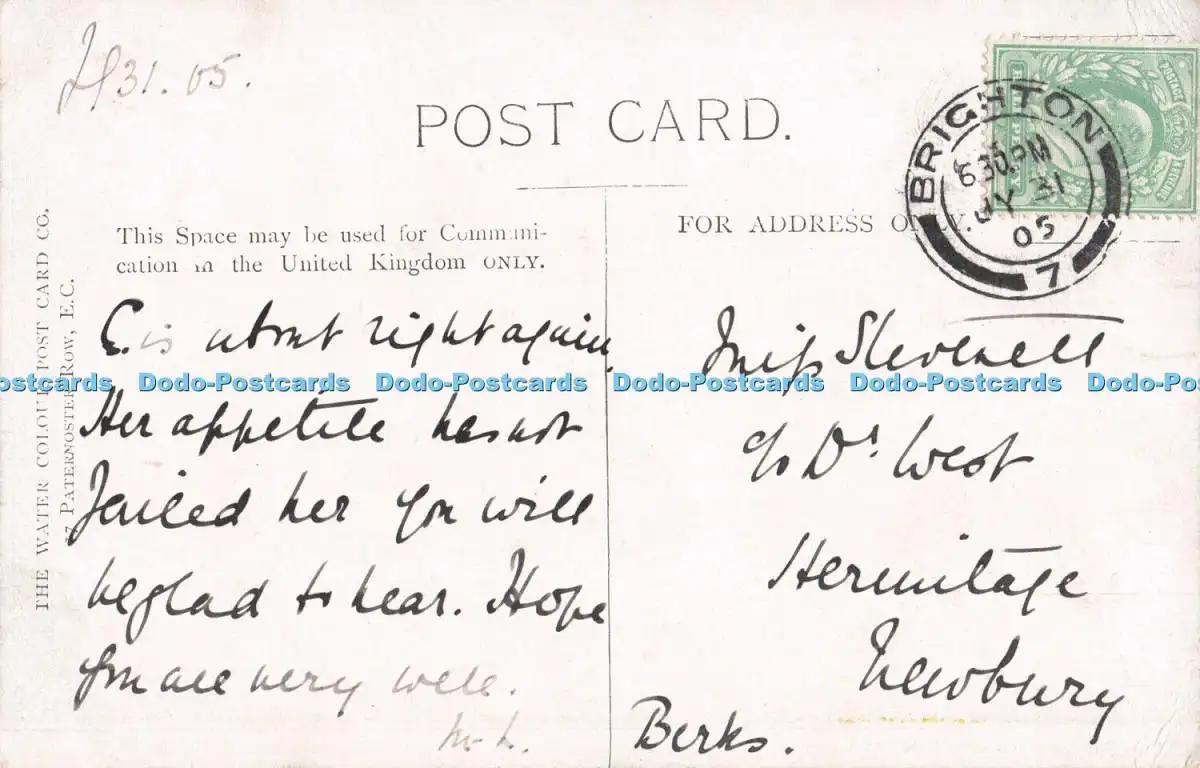 Jy 31. 05.
POST CARD.
This Space may be used for Communi-
cation in the United Kingdom ONLY.
FOR ADDRESS ONLY.
BRIGHTON
6 30 PM
JY 31
05
7
POSTAGE
THE WATER COLOUR POST CARD CO.
7 PATERNOSTER ROW, E.C.
C. is about right again.
Her appetite has not
failed her you will
be glad to hear. Hope
you are very well.
Miss
c/o Dr. West
Hermitage
Newbury
Berks.
Dodo-Postcards Dodo-Postcards Dodo-Postcards Dodo-Postcards